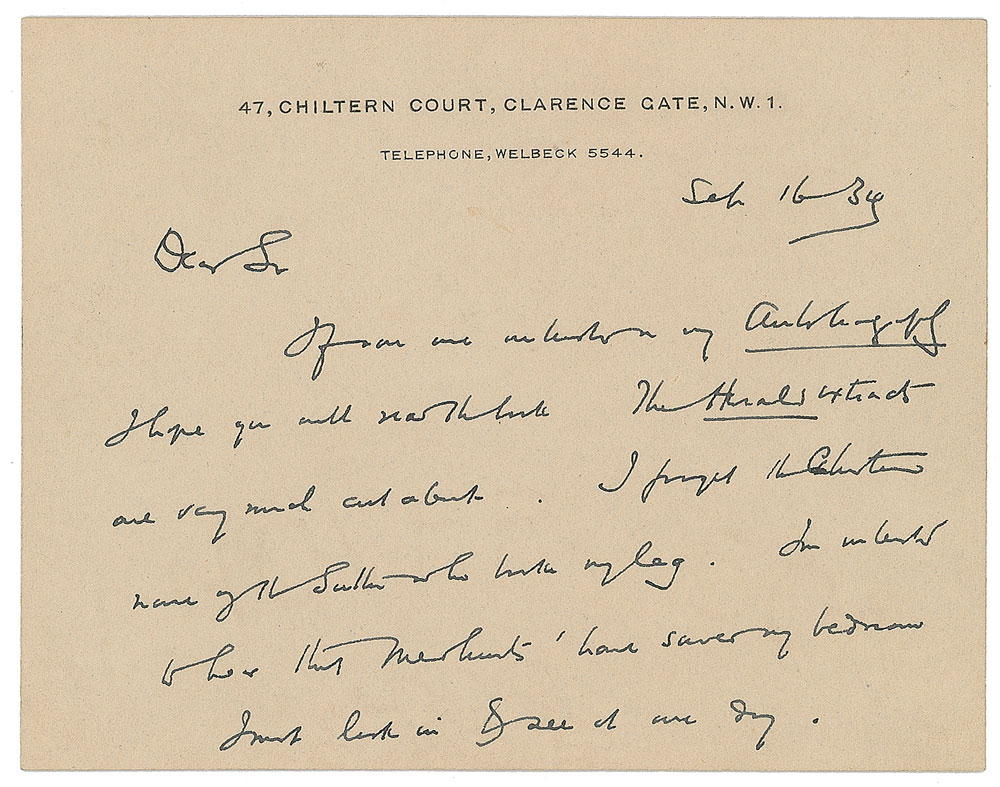 47, CHILTERN COURT, CLARENCE GATE, N.W.1.
TELEPHONE, WELBECK 5544.
Sep 16 34
Dear Sir
If you are interested in my Autobiography
I hope you will read the book The Herald extracts
are very much cut about . I forget the Christian
name of the Sutton who broke my leg . I'm interested
to hear that Medhursts' have saved my bedroom
I must look in & see it one day .